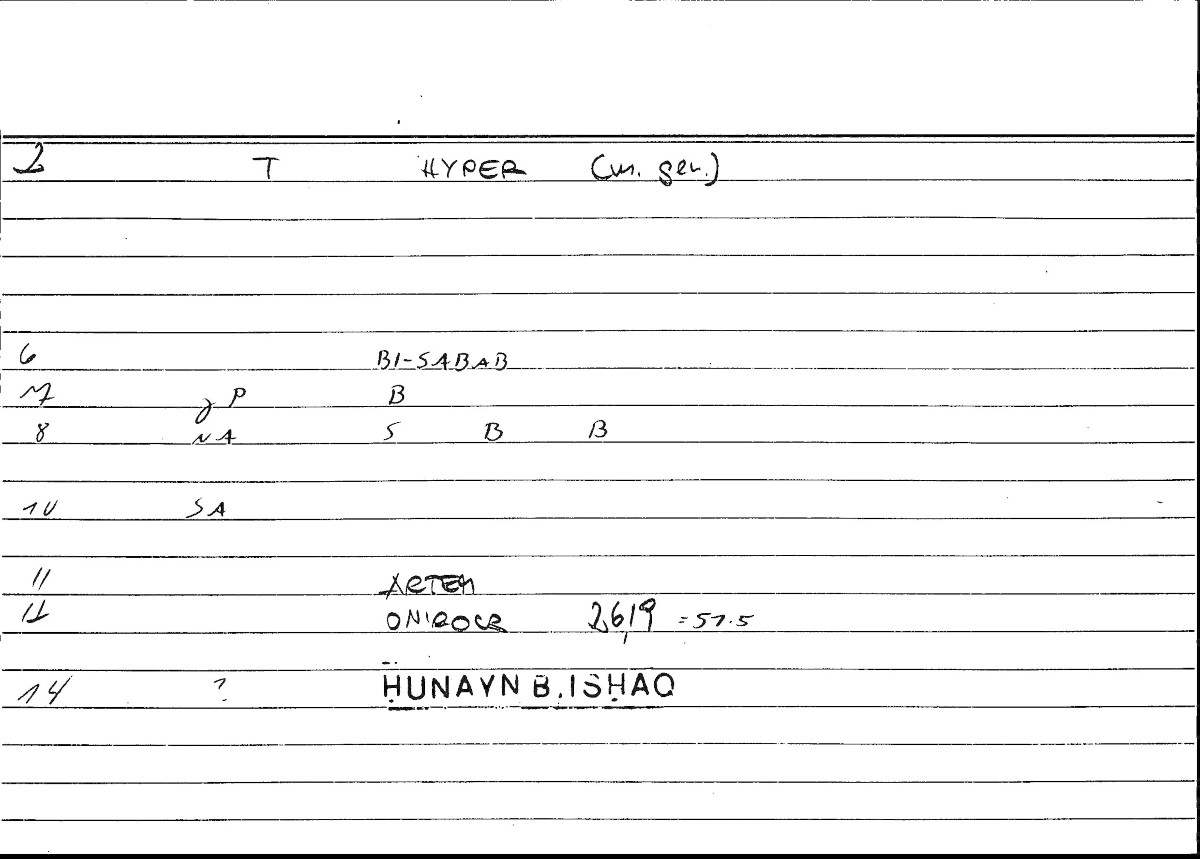 2 T HYPER (m. gen.)
6 BI-SABAB
7 P B
8 NA S B B
10 SA
11 ARTEM
12 ONIROCR 26,9 = 57.5
14 ? ḤUNAYN B. ISḤAQ